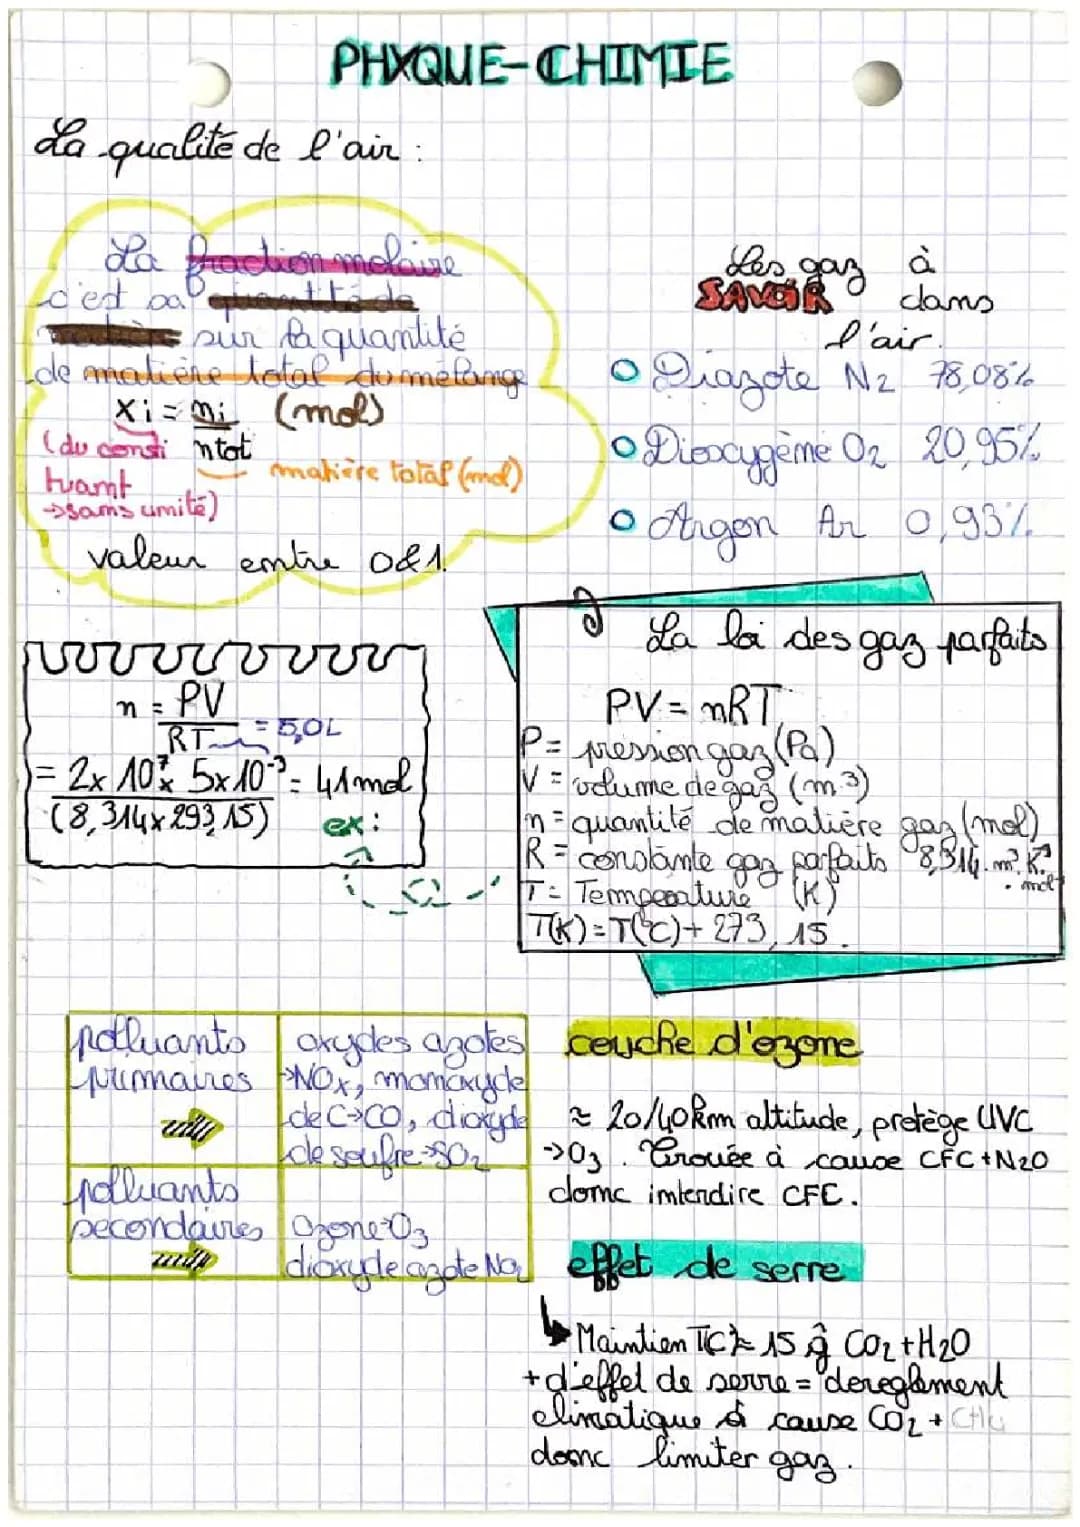 PHXQUE-CHIMIE
La qualité de l'air :
La fraction molaire
c'est sa quantité de
matière sur la quantité
de matière total du mélange
Xi = ni (mol)
ntot
(du consti
tuant
→sans unité)
matière total (mol)
valeur entre 0&1.
Les gaz à
SAVOIR dans
l'air.
Diazote N2 78,08%
Dioxygène O2 20,95%
Argon Ar 0,93%
n = PV
RT = 5,0L
= 2x10⁷x 5x10⁻³ = 41mol
(8,314x293,15)
ex :
La loi des gaz parfaits
PV = nRT
P = pression gaz (Pa)
V = volume de gaz (m³)
n = quantité de matière gaz (mol)
R = constante gaz parfaits 8,314. m³.K
. mol
T = Température (K)
T(K) = T(°C) + 273,15.
polluants
primaires
oxydes azotes
→NOx, monoxyde
de C→CO, dioxyde
de soufre→SO2
polluants
secondaires
Ozone→O3
dioxyde azote NO2
couche d'ozone
≈ 20/40km altitude, protège UVC
→O3. Trouée à cause CFC+N2O
donc interdire CFC.
effet de serre
Maintien T 15 CO2+H2O
+ d'effet de serre = dereglement
climatique à cause CO2 + CH4
donc limiter gaz.